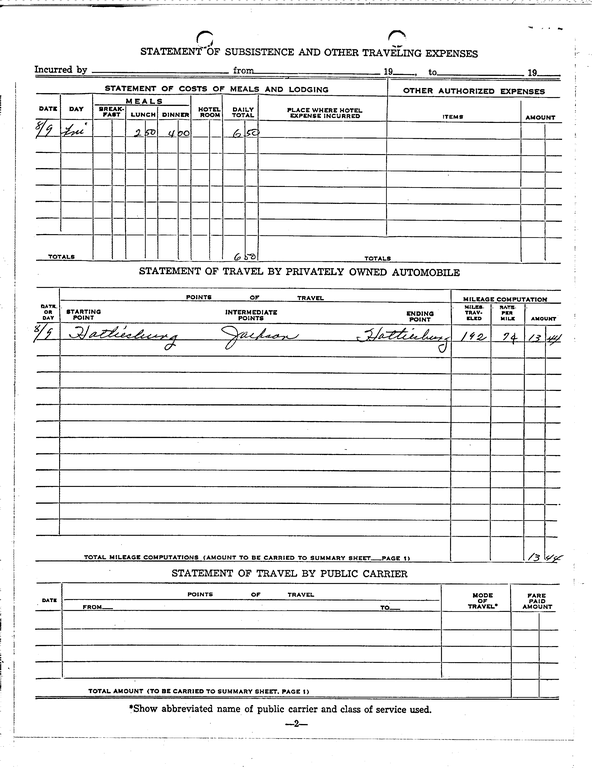 STATEMENT OF SUBSISTENCE AND OTHER TRAVELING EXPENSES
Incurred by from 19 , to 19
STATEMENT OF COSTS OF MEALS AND LODGING OTHER AUTHORIZED EXPENSES
DATE DAY MEALS BREAK-FAST LUNCH DINNER HOTEL ROOM DAILY TOTAL PLACE WHERE HOTEL EXPENSE INCURRED ITEMS AMOUNT
8/9 Fri 2 50 4 00 6 50
TOTALS 6 50 TOTALS
STATEMENT OF TRAVEL BY PRIVATELY OWNED AUTOMOBILE
POINTS OF TRAVEL MILEAGE COMPUTATION
DATE OR DAY STARTING POINT INTERMEDIATE POINTS ENDING POINT MILES TRAV-ELED RATE PER MILE AMOUNT
8/9 Hattiesburg Jackson Hattiesburg 192 13 44
TOTAL MILEAGE COMPUTATIONS (AMOUNT TO BE CARRIED TO SUMMARY SHEET—PAGE 1) 13 44
STATEMENT OF TRAVEL BY PUBLIC CARRIER
DATE POINTS OF TRAVEL MODE OF TRAVEL* FARE PAID AMOUNT
FROM— TO—
TOTAL AMOUNT (TO BE CARRIED TO SUMMARY SHEET. PAGE 1)
*Show abbreviated name of public carrier and class of service used.
—2—